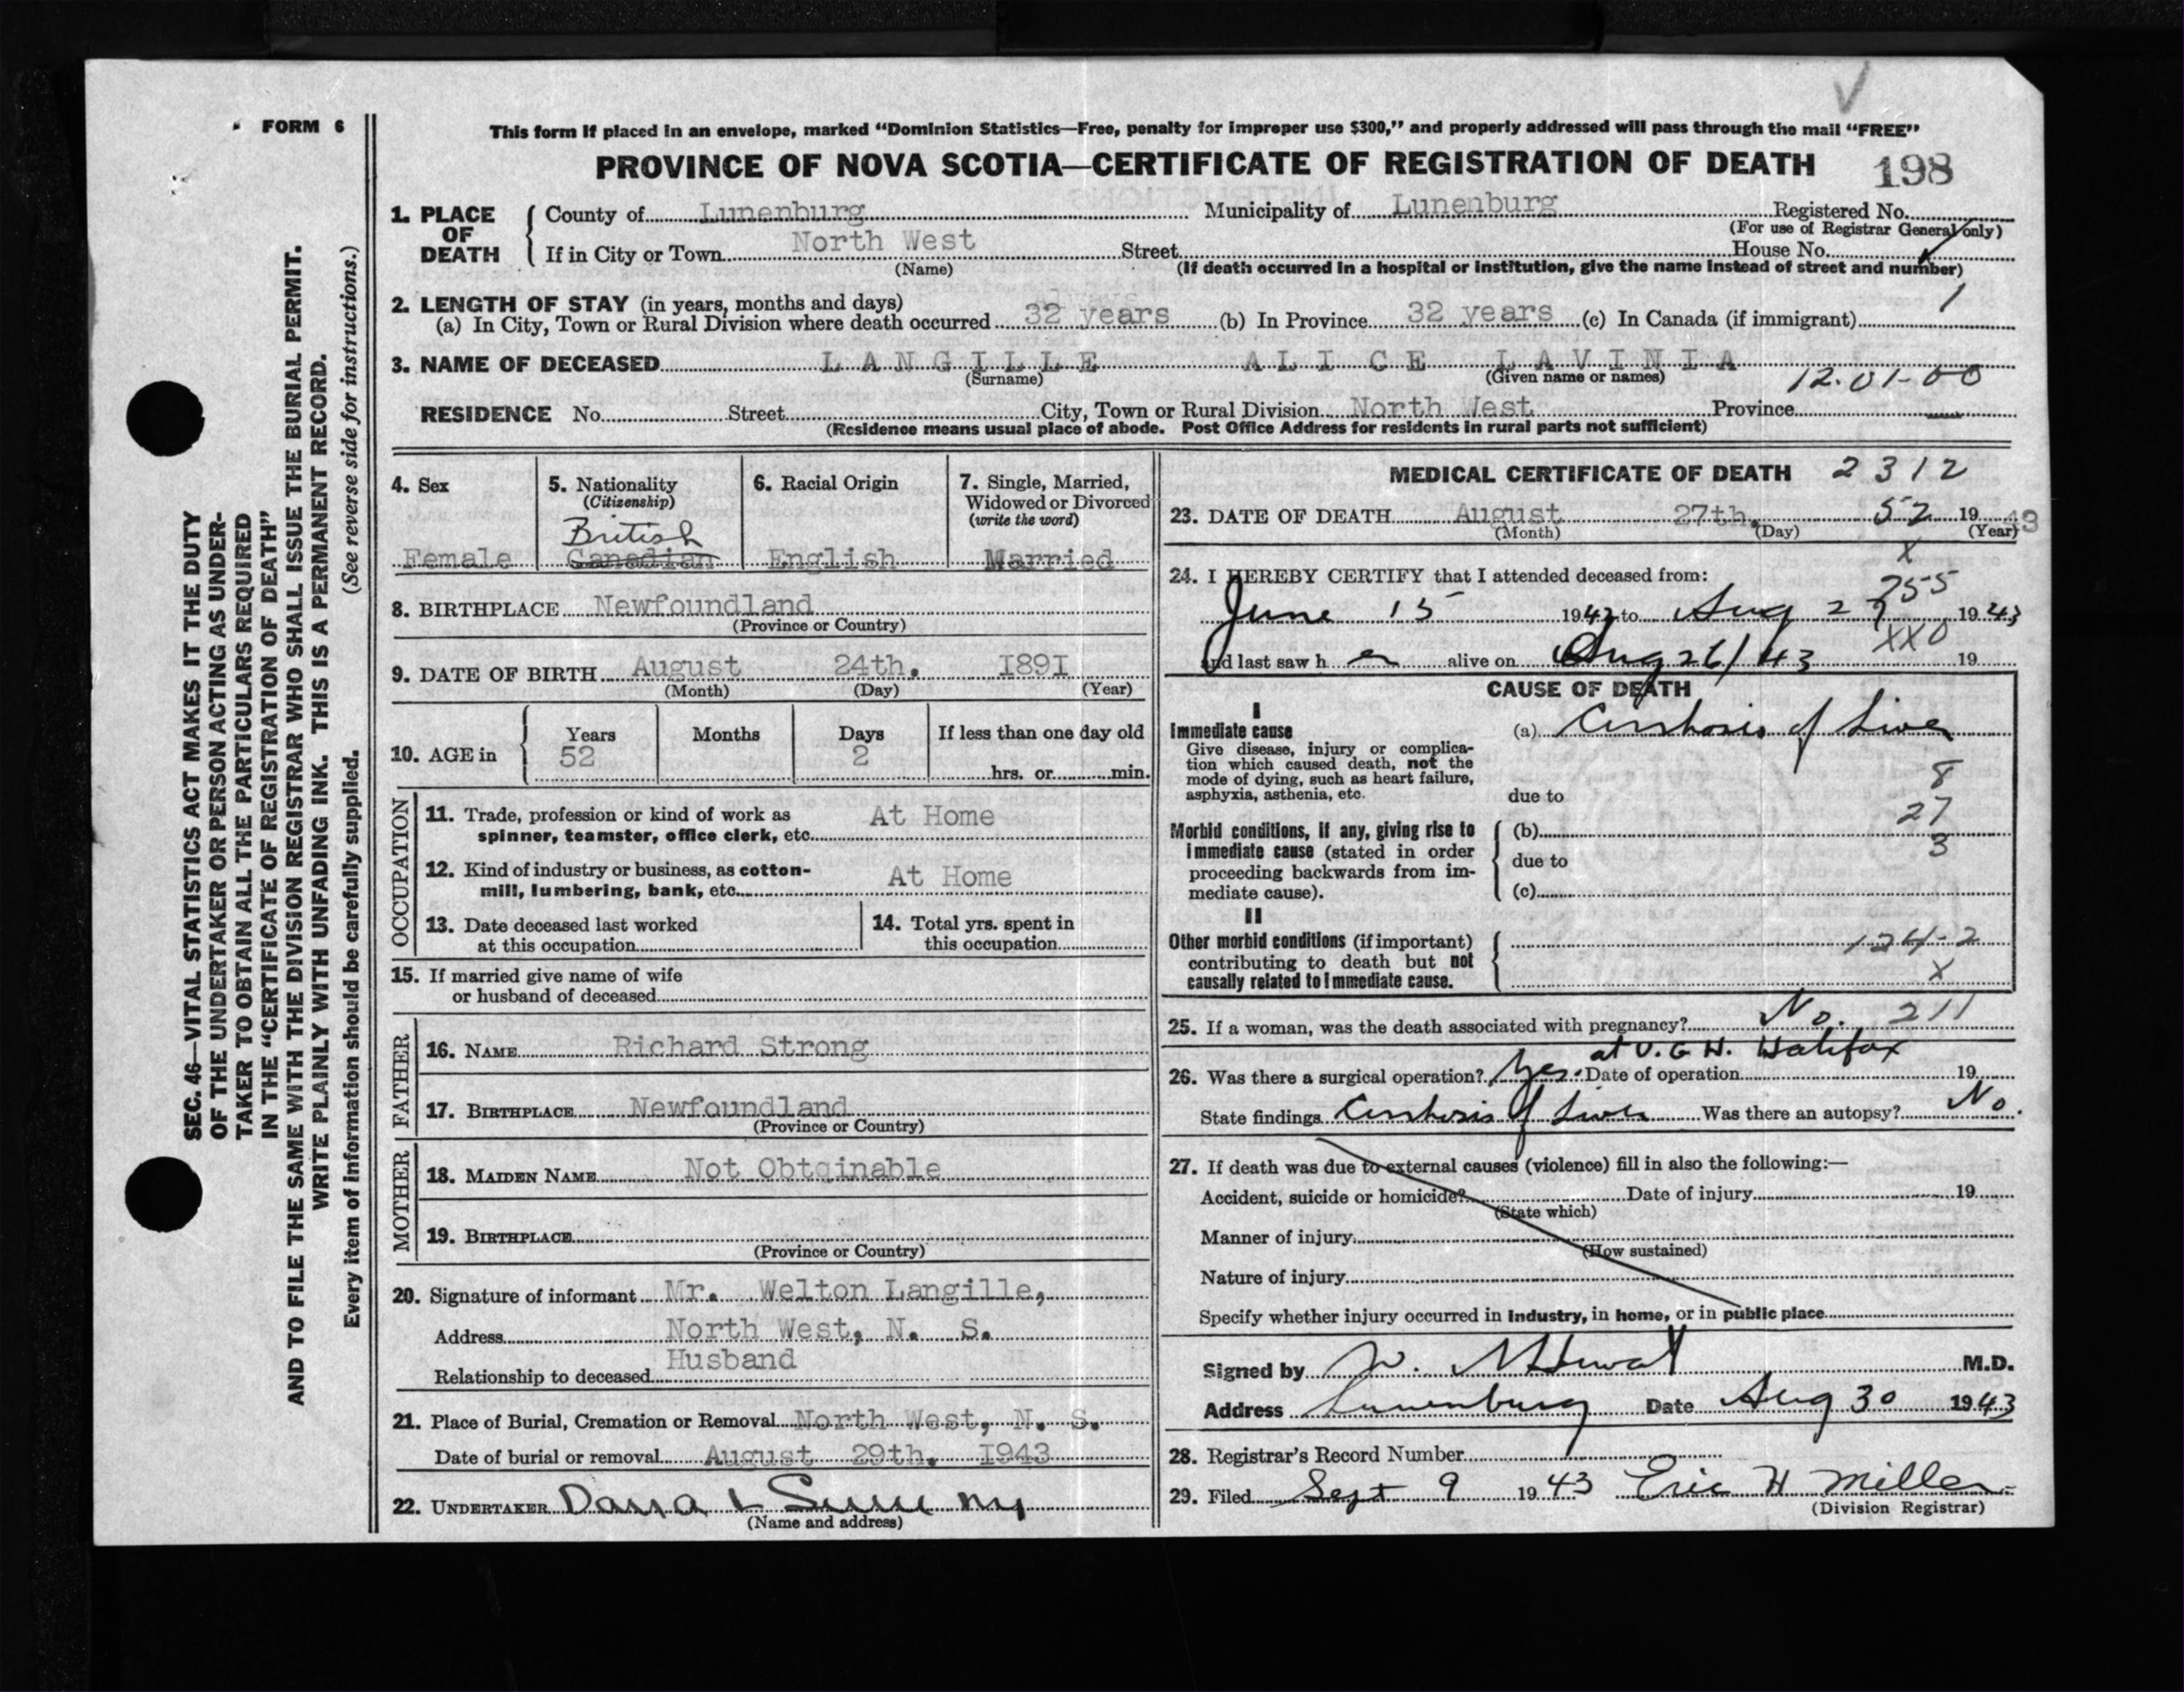 FORM 6
SEC. 46—VITAL STATISTICS ACT MAKES IT THE DUTY
OF THE UNDERTAKER OR PERSON ACTING AS UNDER-
TAKER TO OBTAIN ALL THE PARTICULARS REQUIRED
IN THE "CERTIFICATE OF REGISTRATION OF DEATH"
AND TO FILE THE SAME WITH THE DIVISION REGISTRAR WHO SHALL ISSUE THE BURIAL PERMIT.
WRITE PLAINLY WITH UNFADING INK. THIS IS A PERMANENT RECORD.
Every item of information should be carefully supplied. (See reverse side for instructions.)
This form if placed in an envelope, marked "Dominion Statistics—Free, penalty for improper use $300," and properly addressed will pass through the mail "FREE"
PROVINCE OF NOVA SCOTIA—CERTIFICATE OF REGISTRATION OF DEATH 198
1. PLACE OF DEATH County of Lunenburg Municipality of Lunenburg Registered No.
(For use of Registrar General only)
If in City or Town North West Street House No.
(Name) (If death occurred in a hospital or institution, give the name instead of street and number)
2. LENGTH OF STAY (in years, months and days) 1
(a) In City, Town or Rural Division where death occurred 32 years (b) In Province 32 years (c) In Canada (if immigrant)
3. NAME OF DECEASED LANGILLE ALICE LAVINIA
(Surname) (Given name or names) 12.01-00
RESIDENCE No. Street City, Town or Rural Division North West Province
(Residence means usual place of abode. Post Office Address for residents in rural parts not sufficient)
4. Sex Female
5. Nationality
(Citizenship)
British
Canadian
6. Racial Origin English
7. Single, Married,
Widowed or Divorced
(write the word)
Married
8. BIRTHPLACE Newfoundland
(Province or Country)
9. DATE OF BIRTH August 24th. 1891
(Month) (Day) (Year)
10. AGE in Years Months Days If less than one day old
52 2 hrs. or min.
OCCUPATION
11. Trade, profession or kind of work as
spinner, teamster, office clerk, etc. At Home
12. Kind of industry or business, as cotton-
mill, lumbering, bank, etc. At Home
13. Date deceased last worked
at this occupation
14. Total yrs. spent in
this occupation
15. If married give name of wife
or husband of deceased
FATHER
16. NAME Richard Strong
17. BIRTHPLACE Newfoundland
(Province or Country)
MOTHER
18. MAIDEN NAME Not Obtqinable
19. BIRTHPLACE
(Province or Country)
20. Signature of informant Mr. Welton Langille,
Address North West, N. S.
Relationship to deceased Husband
21. Place of Burial, Cremation or Removal North West, N. S.
Date of burial or removal August 29th. 1943
22. UNDERTAKER
(Name and address)
MEDICAL CERTIFICATE OF DEATH 2312
23. DATE OF DEATH August 27th. 52 1943
(Month) (Day) (Year)
x
24. I HEREBY CERTIFY that I attended deceased from:
255
June 15 1942 to Aug 27 1943
XX0
and last saw h er alive on Aug 26/43 19
CAUSE OF DEATH
I
Immediate cause
Give disease, injury or complica-
tion which caused death, not the
mode of dying, such as heart failure,
asphyxia, asthenia, etc.
(a) Cirrhosis of Liver
8
due to
27
Morbid conditions, if any, giving rise to
immediate cause (stated in order
proceeding backwards from im-
mediate cause).
(b)
due to 3
(c)
II
Other morbid conditions (if important)
contributing to death but not
causally related to immediate cause.
124-2
X
25. If a woman, was the death associated with pregnancy? No. 211
at V.G.H. Halifax
26. Was there a surgical operation? Yes. Date of operation 19
State findings Cirrhosis of Liver Was there an autopsy? No.
27. If death was due to external causes (violence) fill in also the following:—
Accident, suicide or homicide? Date of injury 19
(State which)
Manner of injury
(How sustained)
Nature of injury
Specify whether injury occurred in industry, in home, or in public place
Signed by M.D.
Address Lunenburg Date Aug 30 1943
28. Registrar's Record Number
29. Filed Sept 9 1943 Eric H Miller
(Division Registrar)